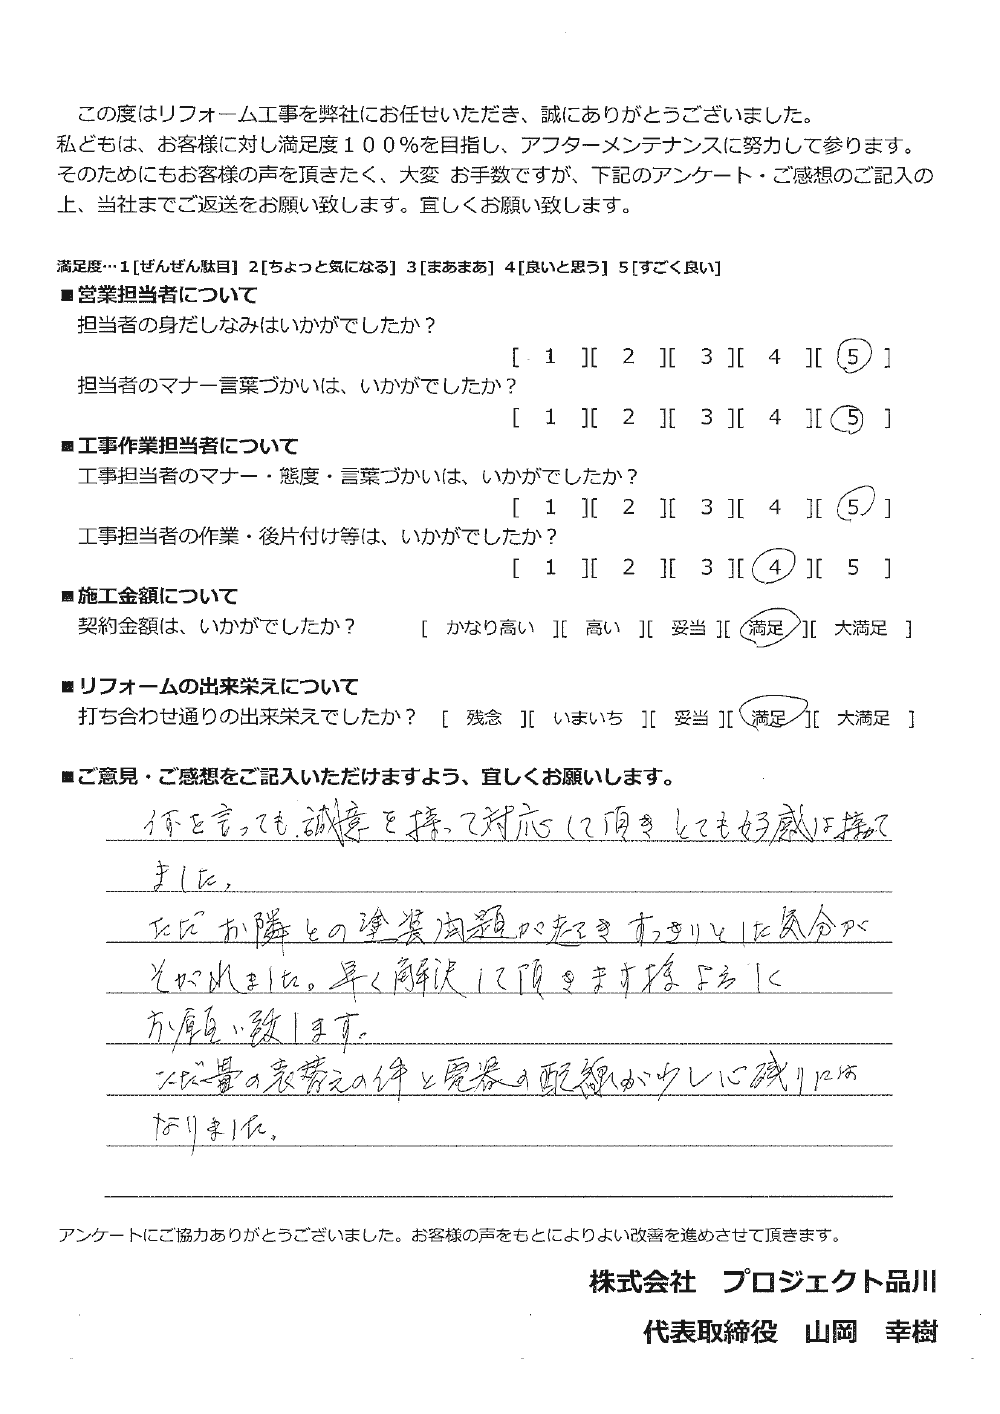 この度はリフォーム工事を弊社にお任せいただき、誠にありがとうございました。
私どもは、お客様に対し満足度１００％を目指し、アフターメンテナンスに努力して参ります。
そのためにもお客様の声を頂きたく、大変 お手数ですが、下記のアンケート・ご感想のご記入の
上、当社までご返送をお願い致します。宜しくお願い致します。
満足度…１[ぜんぜん駄目] ２[ちょっと気になる] ３[まあまあ] ４[良いと思う] ５[すごく良い]
■営業担当者について
担当者の身だしなみはいかがでしたか？
[ 1 ][ 2 ][ 3 ][ 4 ][ 5 ]
担当者のマナー言葉づかいは、いかがでしたか？
[ 1 ][ 2 ][ 3 ][ 4 ][ 5 ]
■工事作業担当者について
工事担当者のマナー・態度・言葉づかいは、いかがでしたか？
[ 1 ][ 2 ][ 3 ][ 4 ][ 5 ]
工事担当者の作業・後片付け等は、いかがでしたか？
[ 1 ][ 2 ][ 3 ][ 4 ][ 5 ]
■施工金額について
契約金額は、いかがでしたか？ [ かなり高い ][ 高い ][ 妥当 ][ 満足 ][ 大満足 ]
■リフォームの出来栄えについて
打ち合わせ通りの出来栄えでしたか？ [ 残念 ][ いまいち ][ 妥当 ][ 満足 ][ 大満足 ]
■ご意見・ご感想をご記入いただけますよう、宜しくお願いします。
何を言っても誠意を持って対応して頂きとても好感は持て
ました。
ただお隣との塗装問題が すっきりとした気分が
そがれました。早く解決して頂きます様
お願い致します。
ただ畳の表替えの件と電器の配線が少し心残りには
なりました。
アンケートにご協力ありがとうございました。お客様の声をもとによりよい改善を進めさせて頂きます。
株式会社　プロジェクト品川
代表取締役　山岡　幸樹